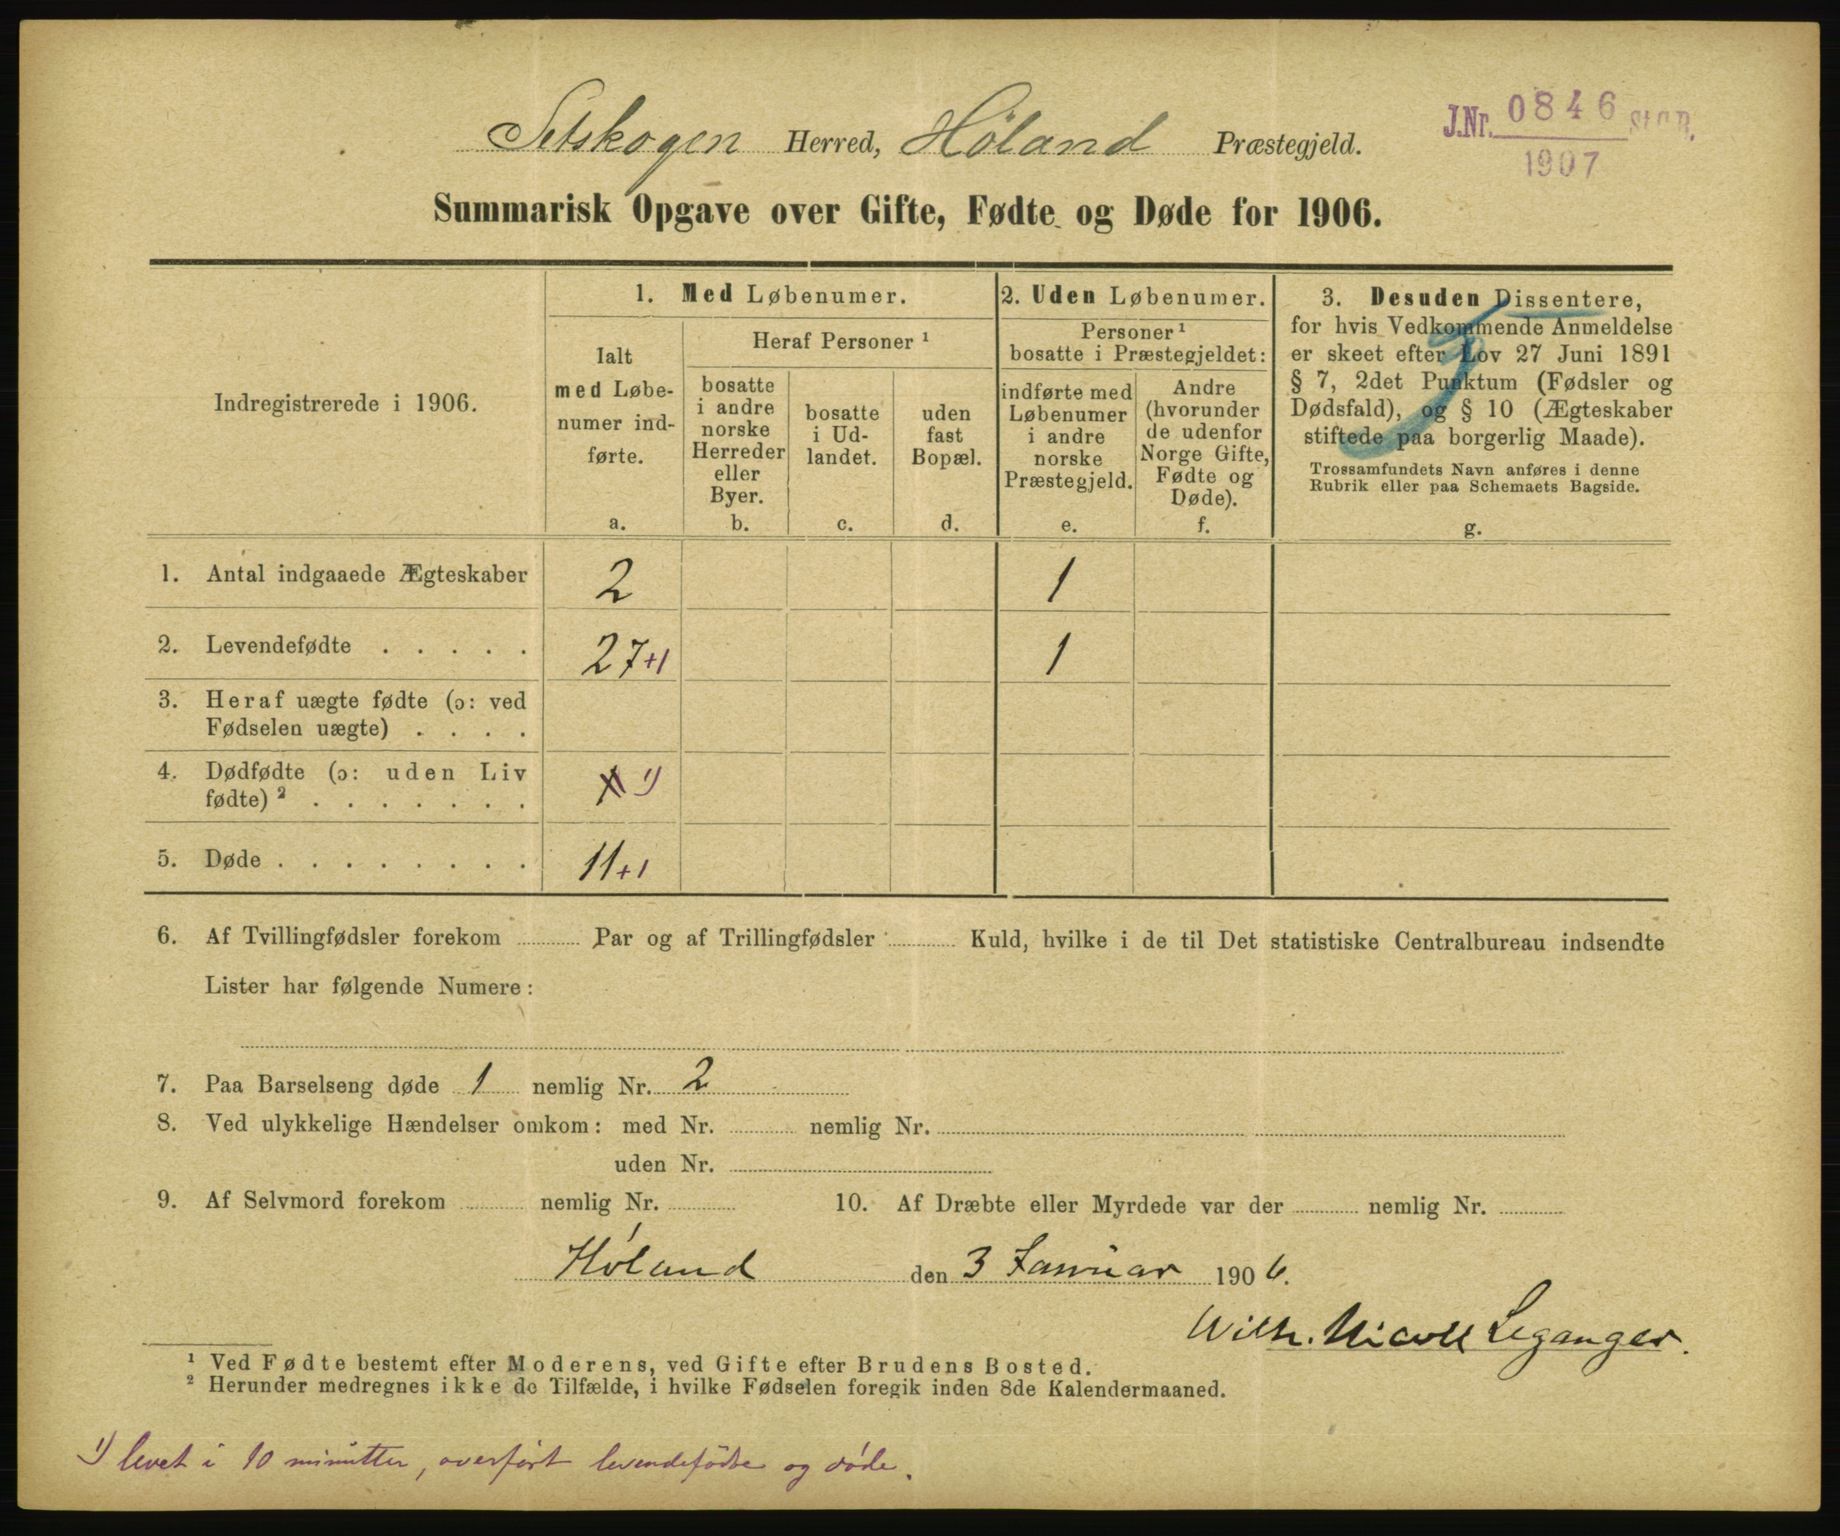 Setskogen Herred, Höland Præstegjeld.
J.Nr. 0846 St.C.B.
1907
Summarisk Opgave over Gifte, Fødte og Døde for 1906.
Indregistrerede i 1906.
1. Med Løbenumer.
Ialt
med Løbe-
numer ind-
førte.
a.
Heraf Personer ¹
bosatte
i andre
norske
Herreder
eller
Byer.
b.
bosatte
i Ud-
landet.
c.
uden
fast
Bopæl.
d.
2. Uden Løbenumer.
Personer ¹
bosatte i Præstegjeldet:
indførte med
Løbenumer
i andre
norske
Præstegjeld.
e.
Andre
(hvorunder
de udenfor
Norge Gifte,
Fødte og
Døde).
f.
3. Desuden Dissentere,
for hvis Vedkommende Anmeldelse
er skeet efter Lov 27 Juni 1891
§ 7, 2det Punktum (Fødsler og
Dødsfald), og § 10 (Ægteskaber
stiftede paa borgerlig Maade).
Trossamfundets Navn anføres i denne
Rubrik eller paa Schemaets Bagside.
g.
1. Antal indgaaede Ægteskaber 2 1
2. Levendefødte . . . . . 27+1 1
3. Heraf uægte fødte (ɔ: ved
Fødselen uægte) . . . .
4. Dødfødte (ɔ: uden Liv
fødte) ² . . . . . . . 1 ¹)
5. Døde . . . . . . . . 11+1
6. Af Tvillingfødsler forekom ............ Par og af Trillingfødsler ............ Kuld, hvilke i de til Det statistiske Centralbureau indsendte
Lister har følgende Numere:
7. Paa Barselseng døde 1 nemlig Nr. 2
8. Ved ulykkelige Hændelser omkom: med Nr. ............ nemlig Nr. ............
uden Nr. ............
9. Af Selvmord forekom ............ nemlig Nr. ............ 10. Af Dræbte eller Myrdede var der ............ nemlig Nr. ............
Höland den 3 Januar 1906.
Wilh. Nicoll Leganger.
¹ Ved Fødte bestemt efter Moderens, ved Gifte efter Brudens Bosted.
² Herunder medregnes ikke de Tilfælde, i hvilke Fødselen foregik inden 8de Kalendermaaned.
¹) levet i 10 minutter, overført levendefødte og døde.